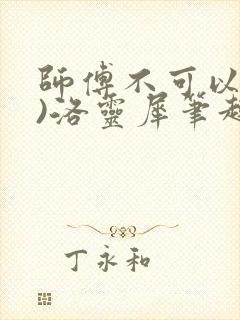 師傅不可以
)洛靈犀筆趣
丁永和